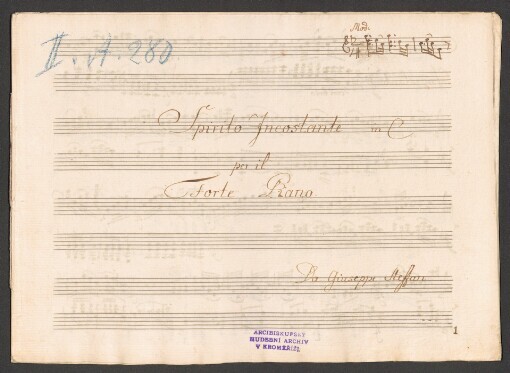 Mod.
II. A. 280
Spirito Incostante in C
per il
Forte Piano
Da Giuseppe
ARCIBISKUPSKÝ
HUDEBNÍ ARCHIV
V KROMĚŘÍŽI
1